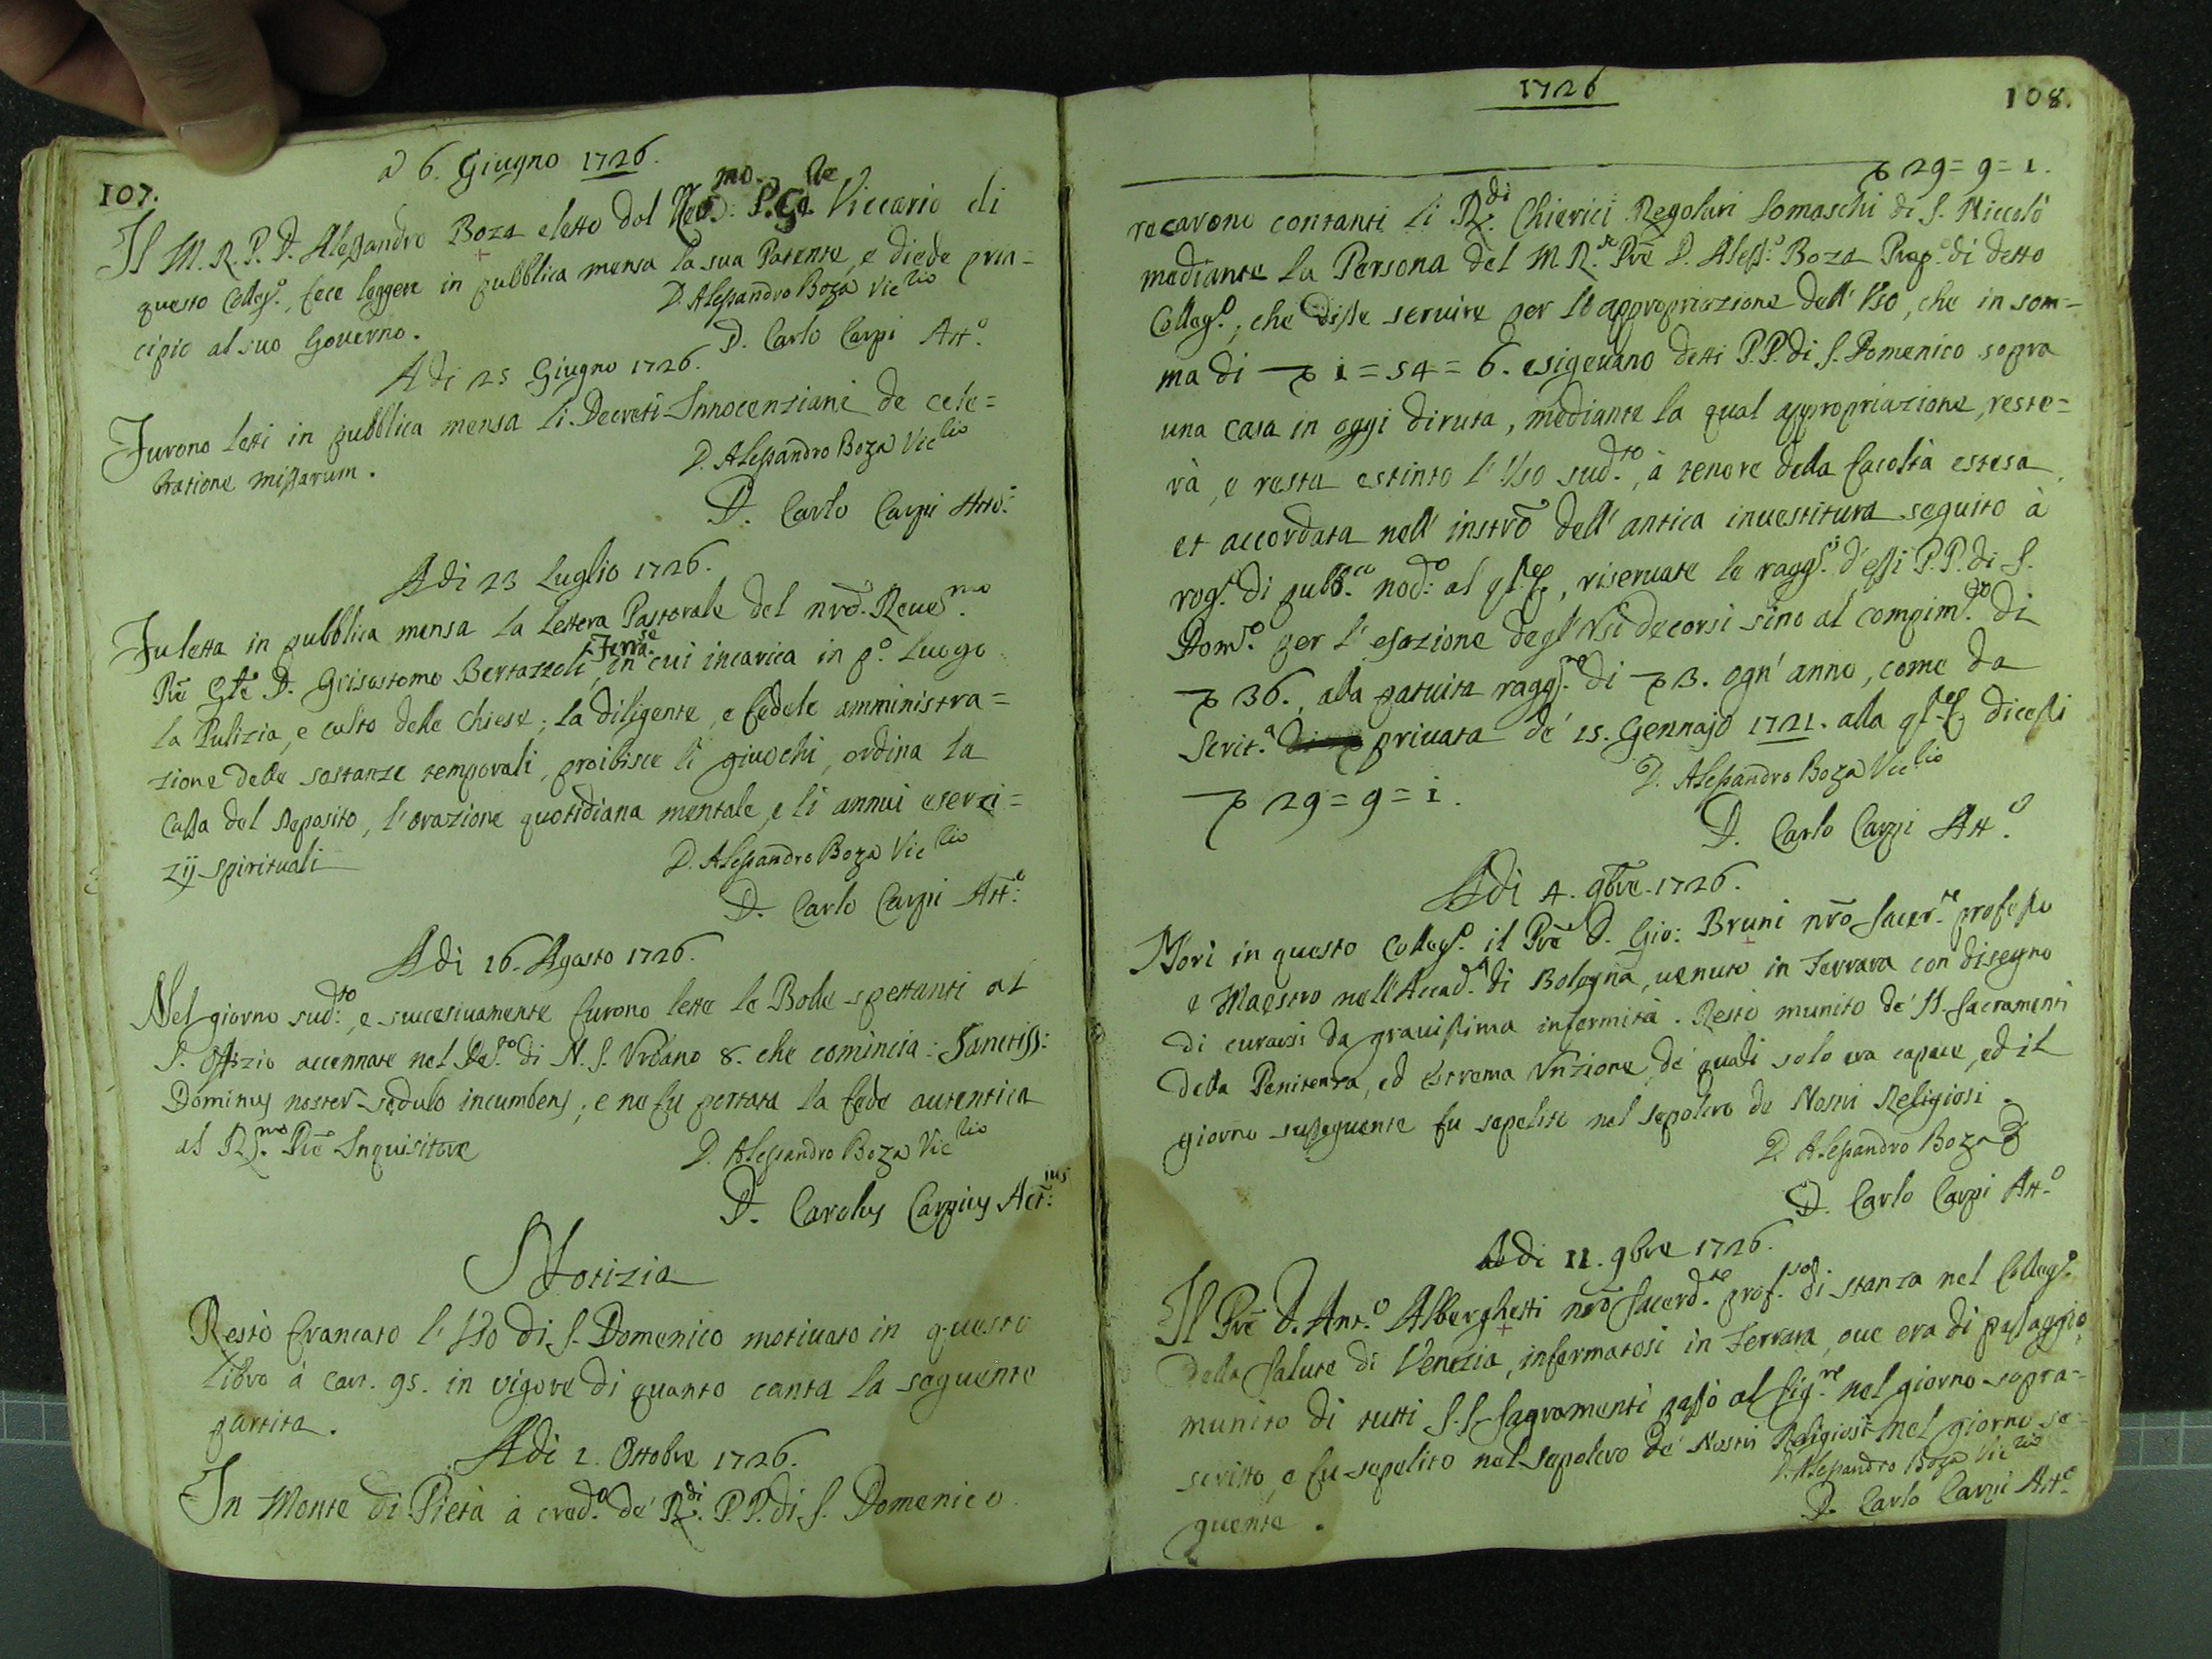 107.
a 6. Giugno 1726.
Il M. R. P. D. Alessandro Boza eletto dal Rev.mo P. Gle Viccario di
questo Colleg.o, fece leggere in pubblica mensa la sua Patente, e diede prin=
cipio al suo Governo.
D. Alessandro Boza Vic.rio
D. Carlo Carpi Att.o
A di 25 Giugno 1726.
Furono letti in pubblica mensa li Decreti Innocenziani de cele=
bratione missarum.
D. Alessandro Boza Vic.rio
D. Carlo Carpi Atto.
A di 23 Luglio 1726.
Fu letta in pubblica mensa la Lettera Pastorale del nrõ. Reves.mo
Prẽ Gl̃e D. Grisostomo Bertazzoli Ferra.se, in cui incarica in p.o luogo
la Pulizia, e culto delle Chiese; la diligente, e fedele amministra=
zione delle sostanze temporali, proibisce li giuochi, ordina la
Cassa del Deposito, l'orazione quotidiana mentale, e li annui eserci=
zij spirituali
D. Alessandro Boza Vic.rio
D. Carlo Carpi Att.o
A di 16. Agosto 1726.
Nel giorno sud.to, e succesivamente furono lette le Bolle spettanti al
S. Offizio accennate nel De.to di N. S. Urbano 8. che comincia: Sanctiss:
Dominus noster sedulo incumbens; e ne fu portata la fede autentica
al R.mo Prẽ Inquisitore
D. Alessandro Boza Vic.rio
D. Carolus Carpius Act.ius
Notizia
Restò francato l'Uso di S. Domenico motivato in questo
Libro à Cart. 95. in vigore di quanto canta la seguente
partita.
A di 2. Ottobre 1726.
In Monte di Pietà à cred.o de' R.di P.P. di S. Domenico
1726
108.
29=9=1.
recarono contanti li R.di Chierici Regolari Somaschi di S. Niccolò
mediante la Persona del M. R. Prẽ D. Aless.o Boza Prep.o di detto
Colleg.o, che disse servire per l'appropriazione dell'Uso, che in som=
ma di 1=54=6. esigevano detti P.P. di S. Domenico sopra
una casa in oggi diruta, mediante la qual appropriazione, reste=
rà, e resta estinto l'Uso sud.to, à tenore della facoltà estesa,
et accordata nell' instrõ dell'antica investitura seguito à
rog. di pubb.co nod.o al, riservate le ragg.i d'essi P.P. di S.
Dom.o per l'esazione degl'Usi decorsi sino al compim.to di
36., alla pattuita ragg.ne di 3. ogn'anno, come da
Scrit.a privata de' 15. Gennajo 1721. alla dicessi
29=9=1.
D. Alessandro Boza Vic.rio
D. Carlo Carpi Att.o
A di 4. 9bre 1726.
Morì in questo Colleg.o il Prẽ D. Gio: Bruni nrõ Sacer.te professo
e Maestro nell'Accad.a di Bologna, venuto in Ferrara con disegno
di curarsi da gravissima infermità. Restò munito de' SS. Sacramenti
della Penitenza, ed Estrema Unzione, de' quali solo era capace, ed il
giorno susseguente fu sepolto nel sepolcro de Nostri Religiosi.
D. Alessandro Boza
D. Carlo Carpi Att.o
A di 11. 9bre 1726.
Il Prẽ D. Ant.o Alberghetti nrõ Sacerd.te prof.so di stanza nel Colleg.o
della Salute di Venezia, infermatosi in Ferrara, ove era di passaggio,
munito di tutti S.S. Sagramenti passò al Sig.re nel giorno sopra=
scritto, e fu sepolto nel sepolcro de' Nostri Religiosi nel giorno se=
guente.
D. Alessandro Boza Vic.rio
D. Carlo Carpi Att.o